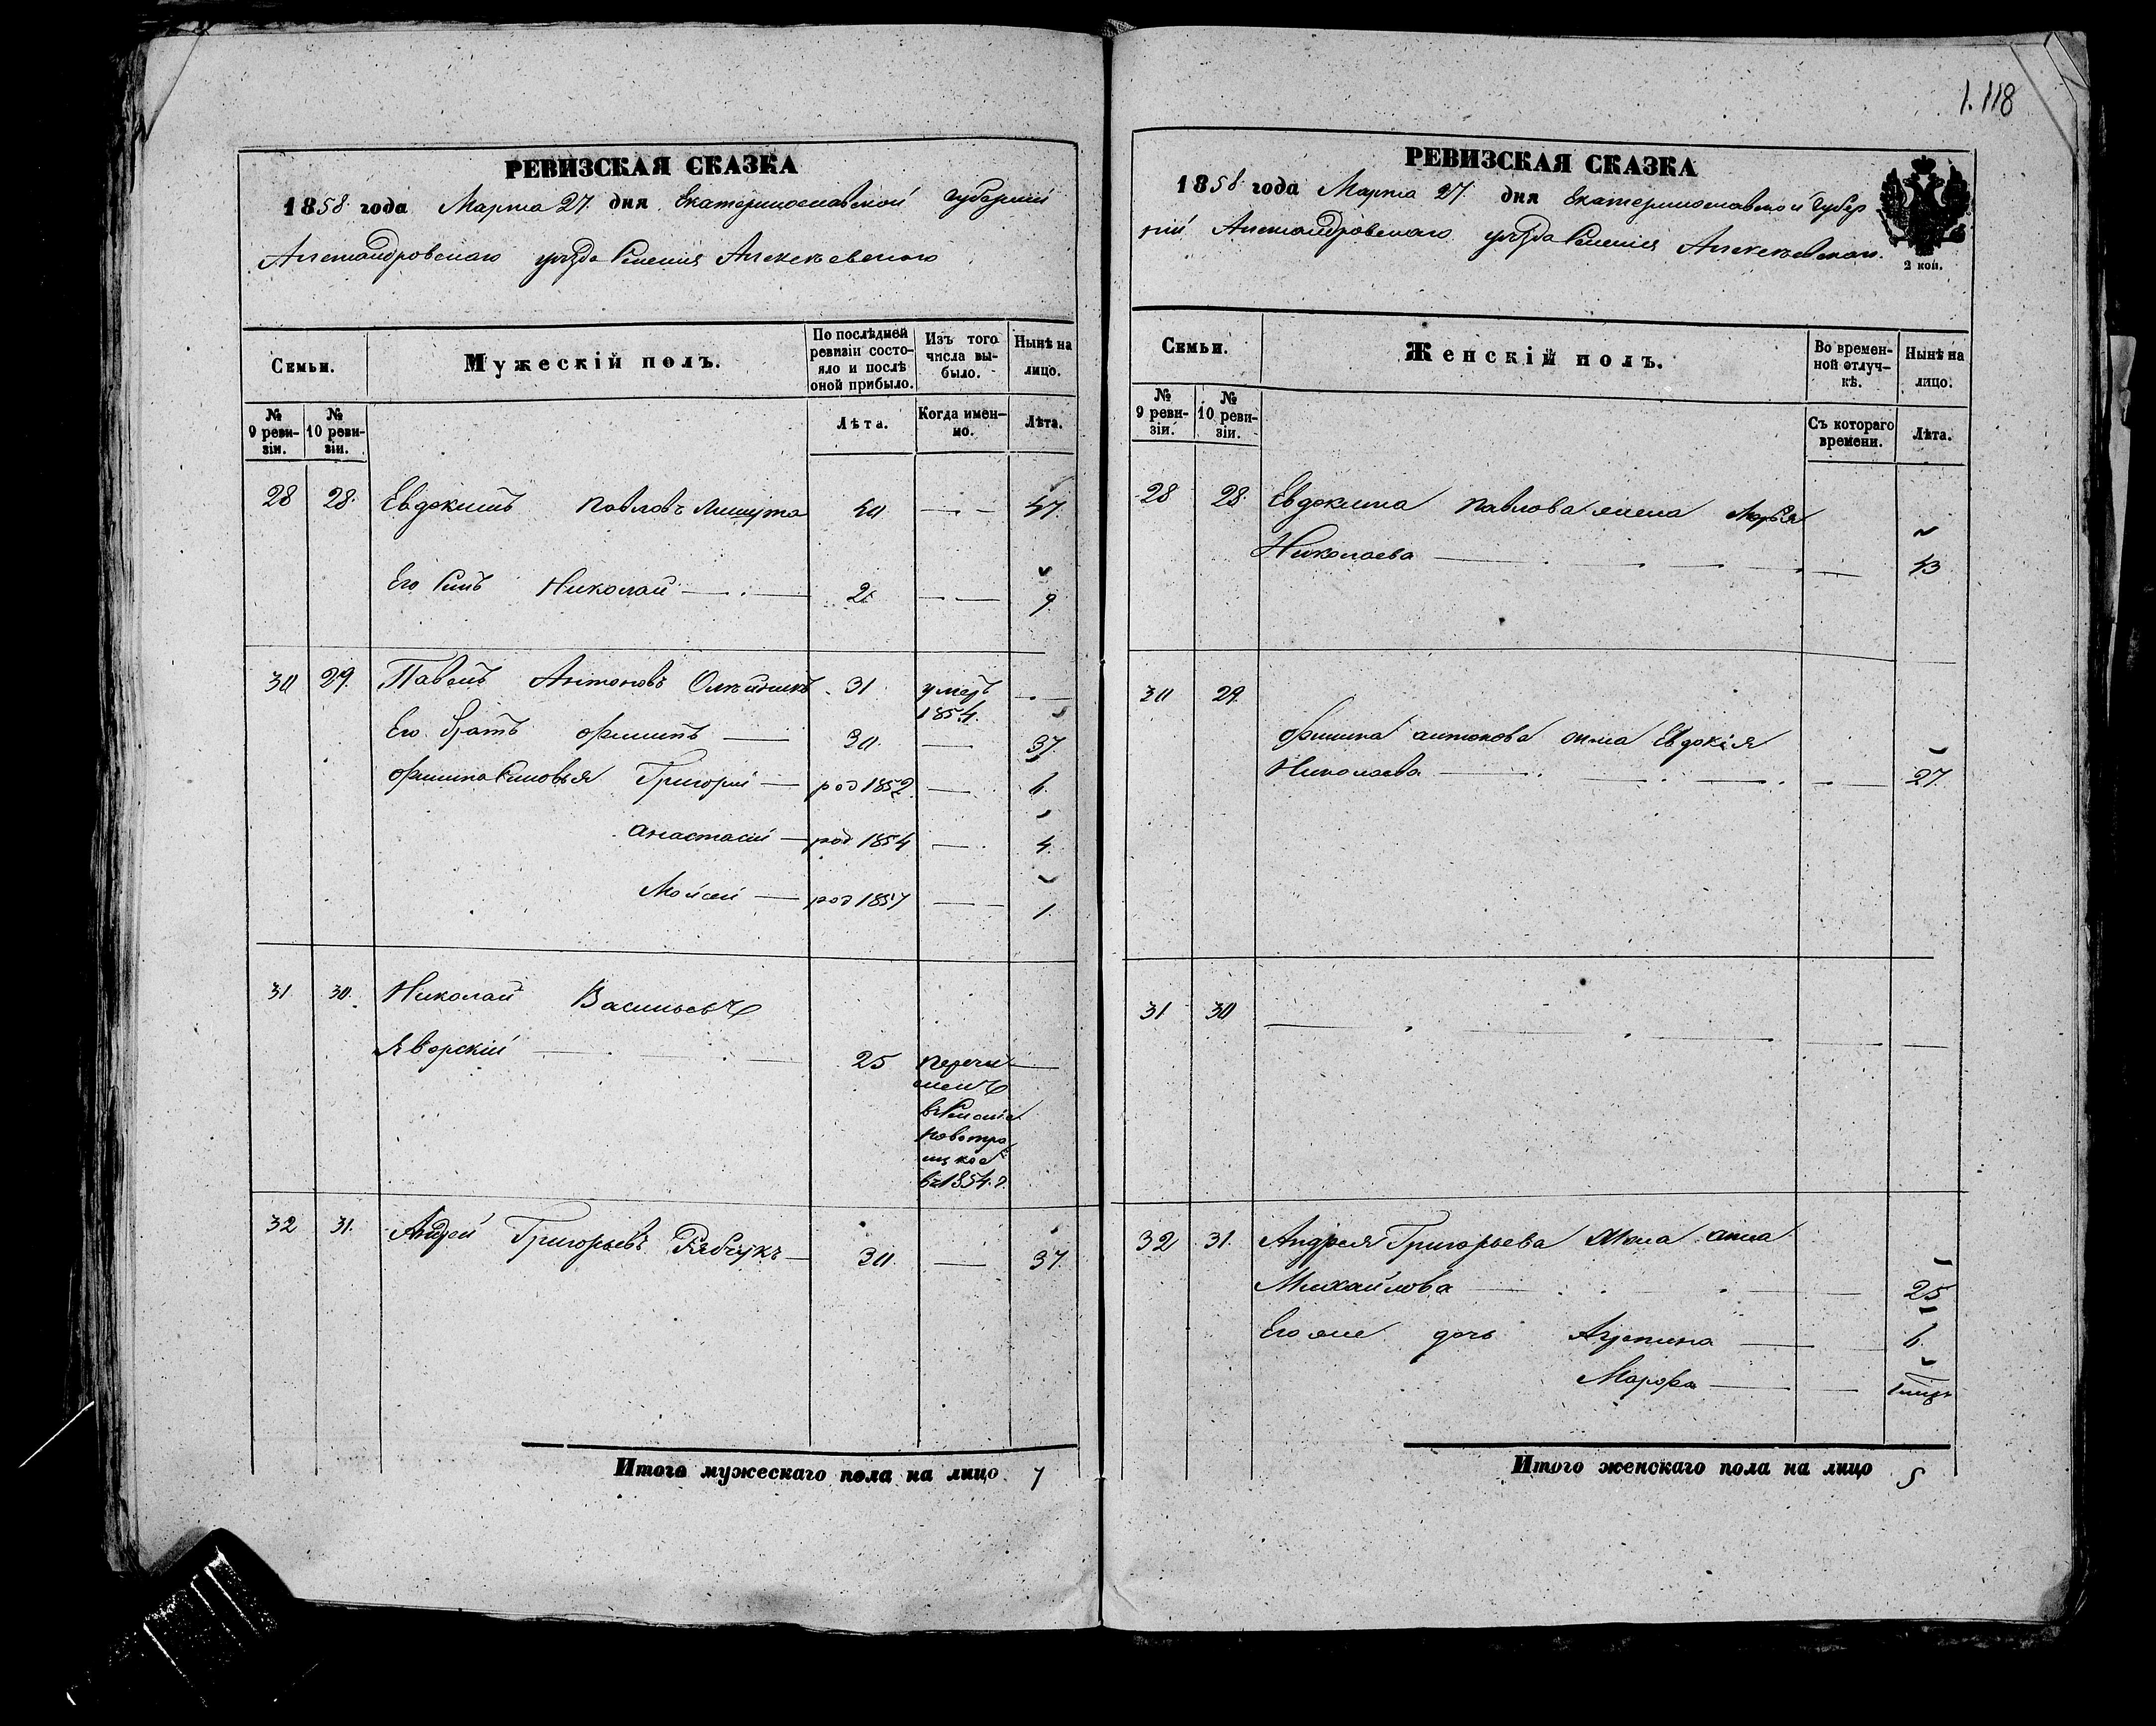 1.118
РЕВИЗСКАЯ СКАЗКА
1858 года Марта 27. дня Екатеринославской Губерніи
Александровскаго уѣзда Селенія Алексѣевскаго
Семьи.
Мужескій полъ.
По послѣдней ревизіи состояло и послѣ оной прибыло.
Изъ того числа выбыло.
Нынѣ на лицо.
№ 9 ревизіи.
№ 10 ревизіи.
Лѣта.
Когда именно.
Лѣта.
28 28. Евдокимъ Павловъ 40 — 47
Его Сынъ Николай — 2 — 9
30 29. Павелъ Антоновъ Олейникъ 31 умеръ 1854. —
Его братъ Филипъ — 30. — 37
Филипа Сыновья Григорій — род 1852. — 6.
Анастасій — род 1854 — 4.
Мойсей — род 1857 — 1.
31 30. Николай Васильевъ
Яворскій — 25 перечи —
сленъ
въ Селеніе
Новотро
ицкое
въ 1854. г.
32 31. Андрей Григорьевъ Рябчукъ — 30. — 37.
Итого мужескаго пола на лицо 7
РЕВИЗСКАЯ СКАЗКА
1858 года Марта 27. дня Екатеринославской Губер
ніи Александровскаго уѣзда Селенія Алексѣевскаго.
2 коп.
Семьи.
Женскій полъ.
Во временной отлучкѣ.
Нынѣ на лицо.
№ 9 ревизіи.
№ 10 ревизіи.
Съ котораго времени.
Лѣта.
28 28. Евдокима Павлова жена Марья
Николаева — — 43
30 29. Филипа Антонова жена Евдокія
Николаева — — 27.
31 30 — — —
32 31. Андрея Григорьева жена Анна
Михайлова — 25
Его же дочь Агрипина — 6.
Марфа — — 1 мѣця
Итого женскаго пола на лицо 5